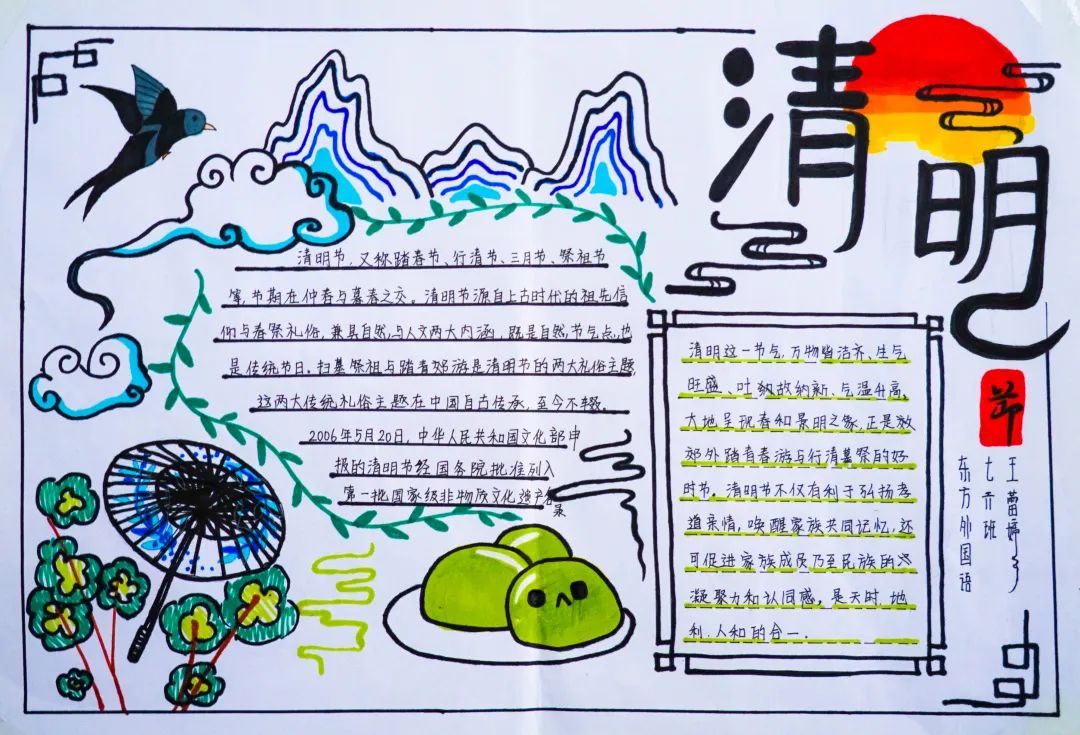 清明
节
清明节,又称踏春节、行清节、三月节、祭祖节
等,节期在仲春与暮春之交。清明节源自上古时代的祖先信
仰与春祭礼俗,兼具自然与人文两大内涵,既是自然节气点,也
是传统节日。扫墓祭祖与踏青郊游是清明节的两大礼俗主题,
这两大传统礼俗主题在中国自古传承,至今不辍。
2006年5月20日,中华人民共和国文化部申
报的清明节经国务院批准列入
第一批国家级非物质文化遗产名
录
清明这一节气,万物皆洁齐、生气
旺盛、吐纳故纳新、气温升高、
大地呈现春和景明之象,正是
郊外踏青春游与行清墓祭的好
时节。清明节不仅有利于弘扬孝
道亲情,唤醒家族共同记忆,还
可促进家族成员乃至民族的
凝聚力和认同感,是天时、地
利、人和的合一.
王蕾婷
七 班
东方外国语